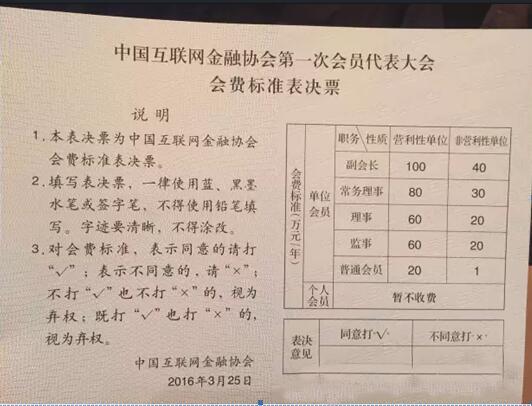 中国互联网金融协会第一次会员代表大会
会费标准表决票
说明
1.本表决票为中国互联网金融协会
会费标准表决票。
2.填写表决票，一律使用蓝、黑墨
水笔或签字笔，不得使用铅笔填
写。字迹要清晰，不得涂改。
3.对会费标准，表示同意的请打
“√”；表示不同意的，请“×”；
不打“√”也不打“×”的，视为
弃权；既打“√”也打“×”的，
视为弃权。
中国互联网金融协会
2016年3月25日
会费标准(万元/年)
单位会员
职务\性质 营利性单位 非营利性单位
副会长 100 40
常务理事 80 30
理事 60 20
监事 60 20
普通会员 20 1
个人会员 暂不收费
表决意见 同意打·√· 不同意打·×·